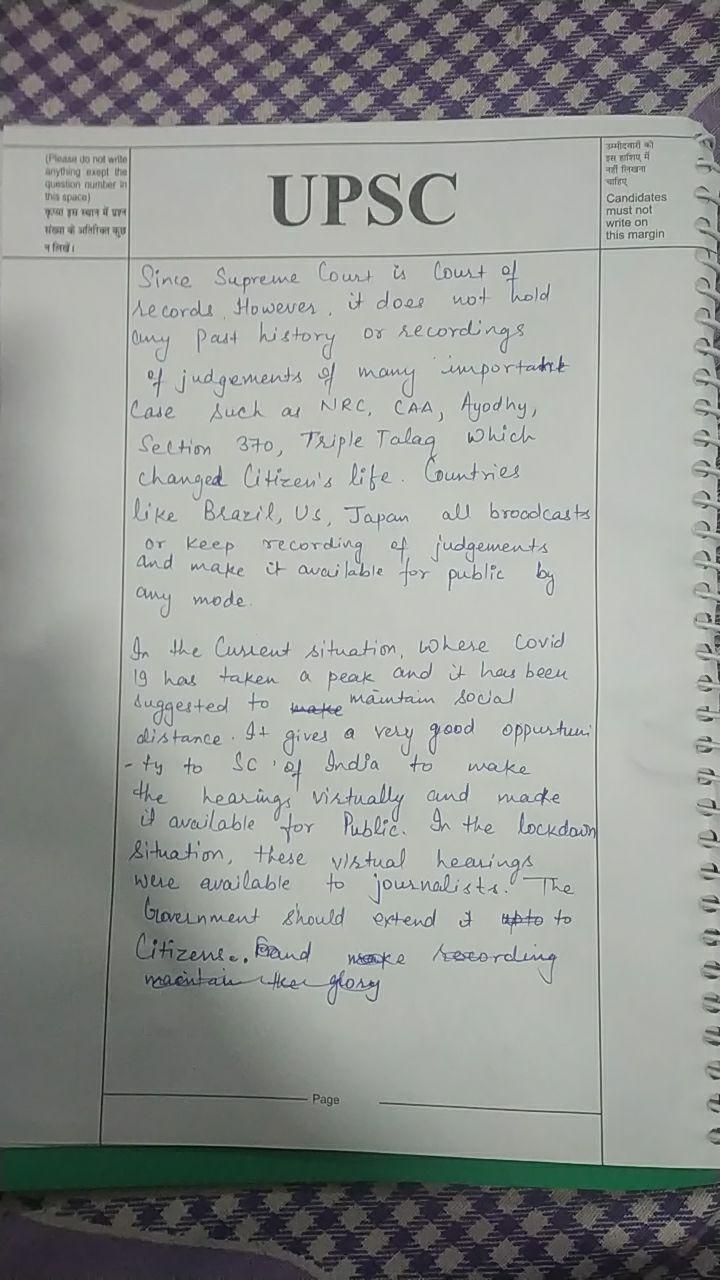 (Please do not write
anything exept the
question number in
this space)
कृपया इस स्थान में प्रश्न
संख्या के अतिरिक्त कुछ
न लिखें।
UPSC
उम्मीदवारों को
इस हाशिए में
नहीं लिखना
चाहिए
Candidates
must not
write on
this margin
Since Supreme Court is Court of
records. However, it does not hold
any past history or recordings
of judgements of many important
Case such as NRC, CAA, Ayodhy,
Section 370, Triple Talaq which
changed Citizen's life. Countries
like Brazil, US, Japan all broadcasts
or keep recording of judgements
and make it available for public by
any mode.
In the Current situation, where Covid
19 has taken a peak and it has been
suggested to make maintain social
distance. It gives a very good oppurtuni
-ty to SC of India to make
the hearings virtually and made
it available for Public. In the lockdown
situation, these virtual hearings
were available to journalists. The
Government should extend it upto to
Citizens. and make recording
maintain the glory
Page